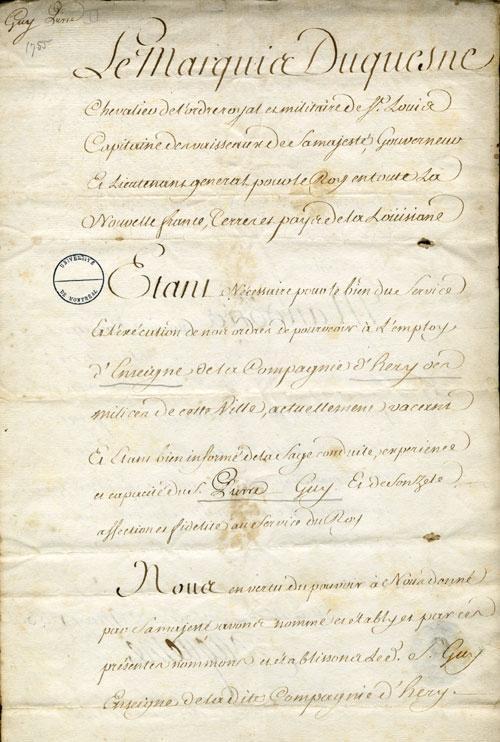 Guy Pierre
1755
Le Marquis Duquesne
Chevalier de l'ordre royal et militaire de St. Louis
Capitaine des vaisseaux de Sa majesté, Gouverneur
Et Lieutenant general pour le Roy en toute La
Nouvelle france, Terres et pays de la Loüisiane
UNIVERSITÉ
DE MONTRÉAL
Etant Nécessaire pour le bien du Service
Et l'exécution de nos ordres de pourvoir à l'employ
d'Enseigne de la Compagnie d'hery des
milices de cette Ville, actuellement vacant
Et Etant bien informé de la Sage conduite, experience
et capacité du S. Pierre Guy Et de Son Zele
affection et fidelité au Service du Roy
Nous en vertu du pouvoir à Nous donné
par Sa majesté avons nommé et étably et par ces
présentes nommons et établissons Le d. S. Guy
Enseigne de la dite Compagnie d'hery.